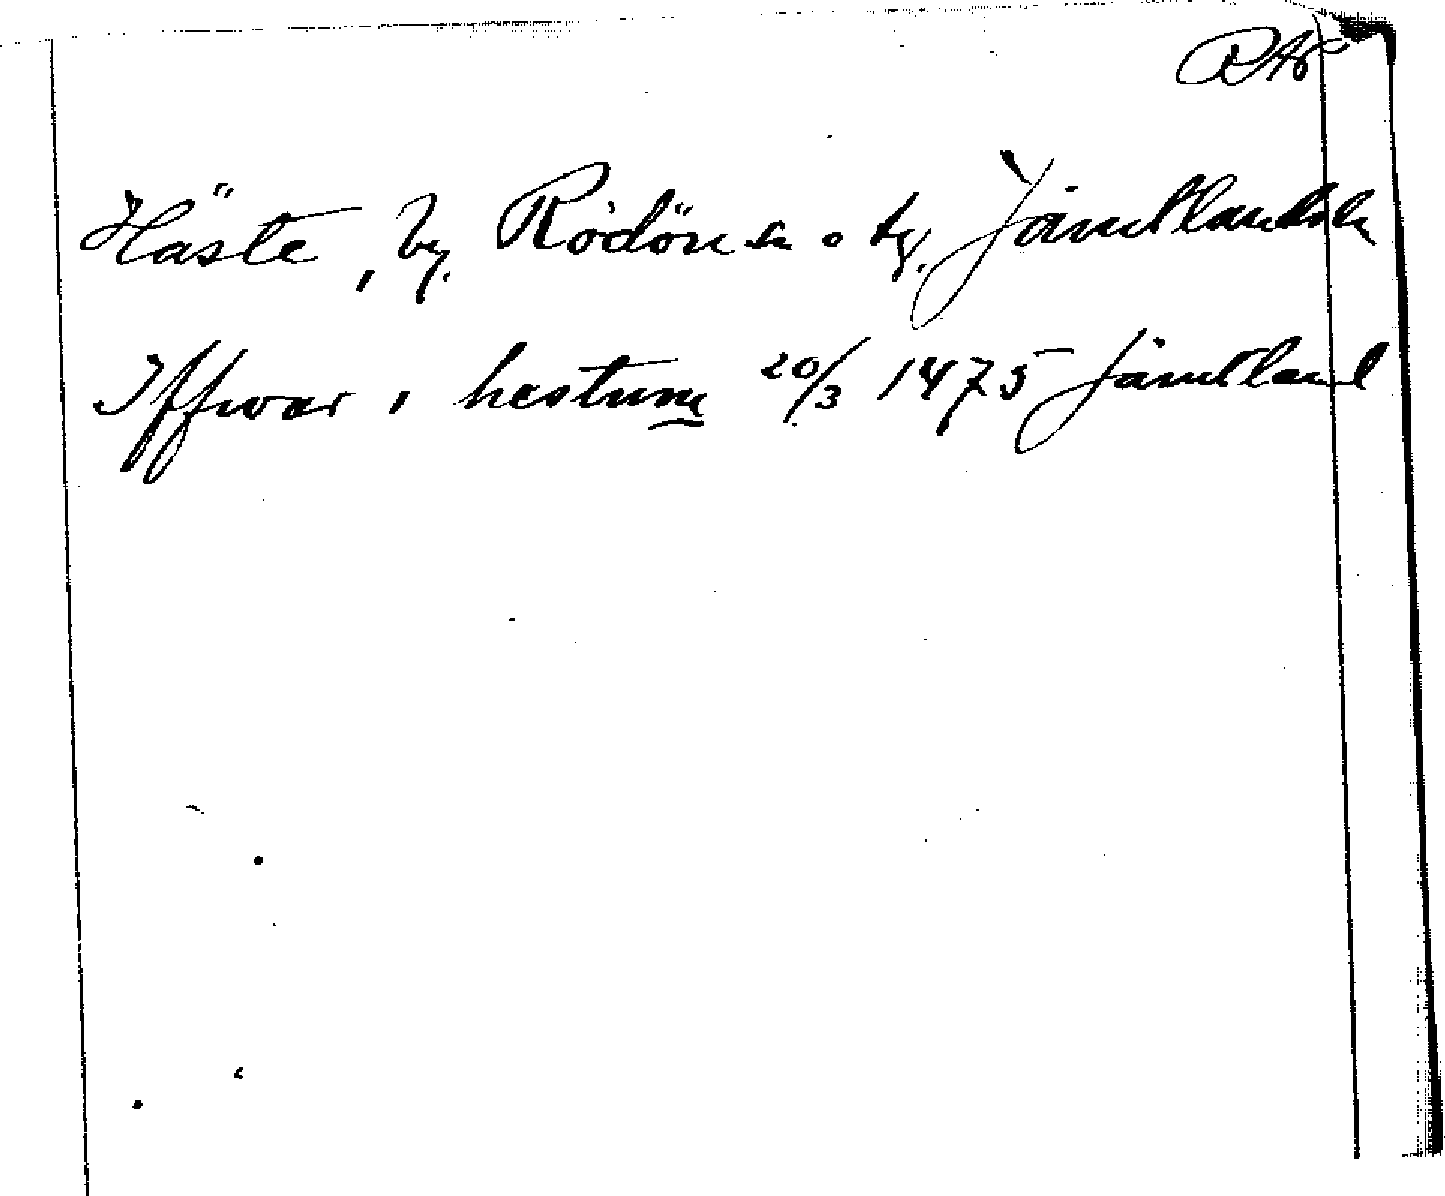 RAp
Häste, by, Rödöns sn o tg, Jämtlands län
Iffwar i hestum 20/3 1475 Jämtland